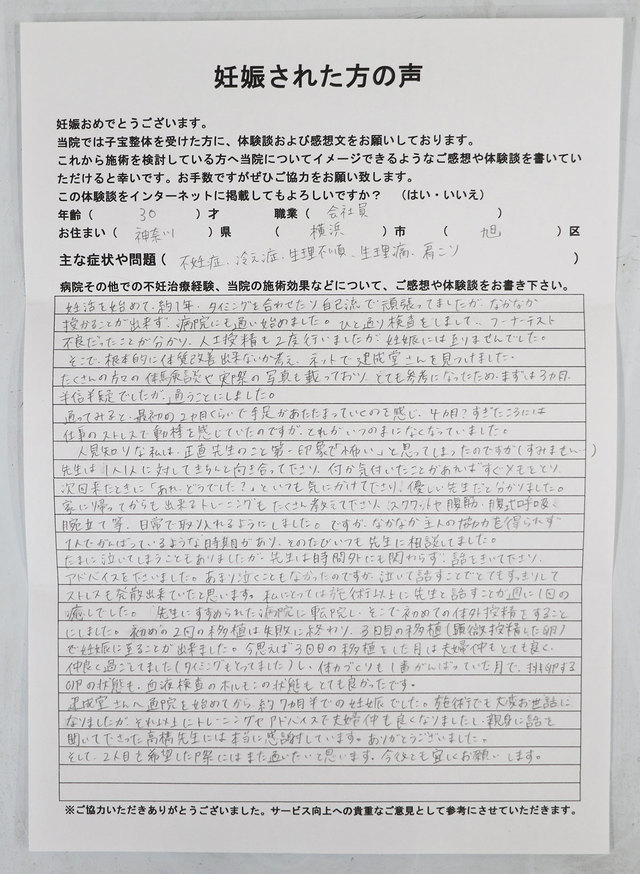 妊娠された方の声
妊娠おめでとうございます。
当院では子宝整体を受けた方に、体験談および感想文をお願いしております。
これから施術を検討している方へ当院についてイメージできるようなご感想や体験談を書いてい
ただけると幸いです。お手数ですがぜひご協力をお願い致します。
この体験談をインターネットに掲載してもよろしいですか？ （はい・いいえ）
年齢（ 30 ）才 職業（ 会社員 ）
お住まい（ 神奈川 ）県 （ 横浜 ）市 （ 旭 ）区
主な症状や問題（ 不妊症、冷え症、生理不順、生理痛、肩こり ）
病院その他での不妊治療経験、当院の施術効果などについて、ご感想や体験談をお書き下さい。
妊活を始めて、約1年、タイミングを合わせたり自己流で頑張ってましたが、なかなか
授かることが出来ず、病院にも通い始めました。ひと通り検査をしまして、フーナーテスト
不良だったことが分かり、人工授精も2度行いましたが、妊娠には至りませんでした。
そこで、根本的に体質改善出来ないか考え、ネットで建成堂さんを見つけました。
たくさんの方々の体験談や実際の写真も載っており、とても参考になったため、まずは3ヵ月、
半信半疑でしたが、通うことにしました。
通ってみると、最初の2ヵ月くらいで手足があたたまっていくのを感じ、4ヵ月？すぎたころには
仕事のストレスで動悸を感じていたのですが、それがいつのまにかなくなっていました。
人見知りな私は、正直先生のこと第一印象で「怖い…」と思ってしまったのですが（すみません…）
先生は1人1人に対してきちんと向き合って下さり、何か気付いたことがあればすぐメモをとり、
次回来たときに「あれ、どうでした？」といつも気にかけて下さり、優しい先生だと分かりました。
家に帰ってからも出来るトレーニングもたくさん教えて下さり、（スクワットや腹筋、腹式呼吸、
腕立て等、日常で取り入れるようにしました。ですが、なかなか主人の協力を得られず
1人でがんばっているような時期があり、そのたびいつも先生に相談してました。
たまに泣いてしまうこともありましたが、先生は時間外にも関わらず、話をきいて下さり、
アドバイスをくださいました。あまり泣くこともなかったのですが、泣いて話すことでとてもすっきりして
ストレスも発散出来ていたと思います。私にとっては施術以上に先生と話すことが週に1回の
癒しでした。先生にすすめられた病院に転院し、そこで初めての体外授精をすること
にしました。初めの2回の移植は失敗に終わり、3回目の移植（顕微授精した卵）
で妊娠に至ることが出来ました。今思えば3回目の移植をした月は夫婦仲もとても良く、
仲良く過ごしてました（タイミングもとってました）し、体力づくりも1番がんばっていた月で、排卵する
卵の状態も、血液検査のホルモンの状態もとても良かったです。
建成堂さんへ通院を始めてから、約7ヵ月半での妊娠でした。施術でも大変お世話に
なりましたが、それ以上にトレーニングやアドバイスで夫婦仲も良くなりましたし、親身に話を
聞いて下さった高橋先生には本当に感謝しています。ありがとうございました。
そして、2人目を希望した際にはまた通いたいと思います。今後とも宜しくお願いします。
※ご協力いただきありがとうございました。サービス向上への貴重なご意見として参考にさせていただきます。